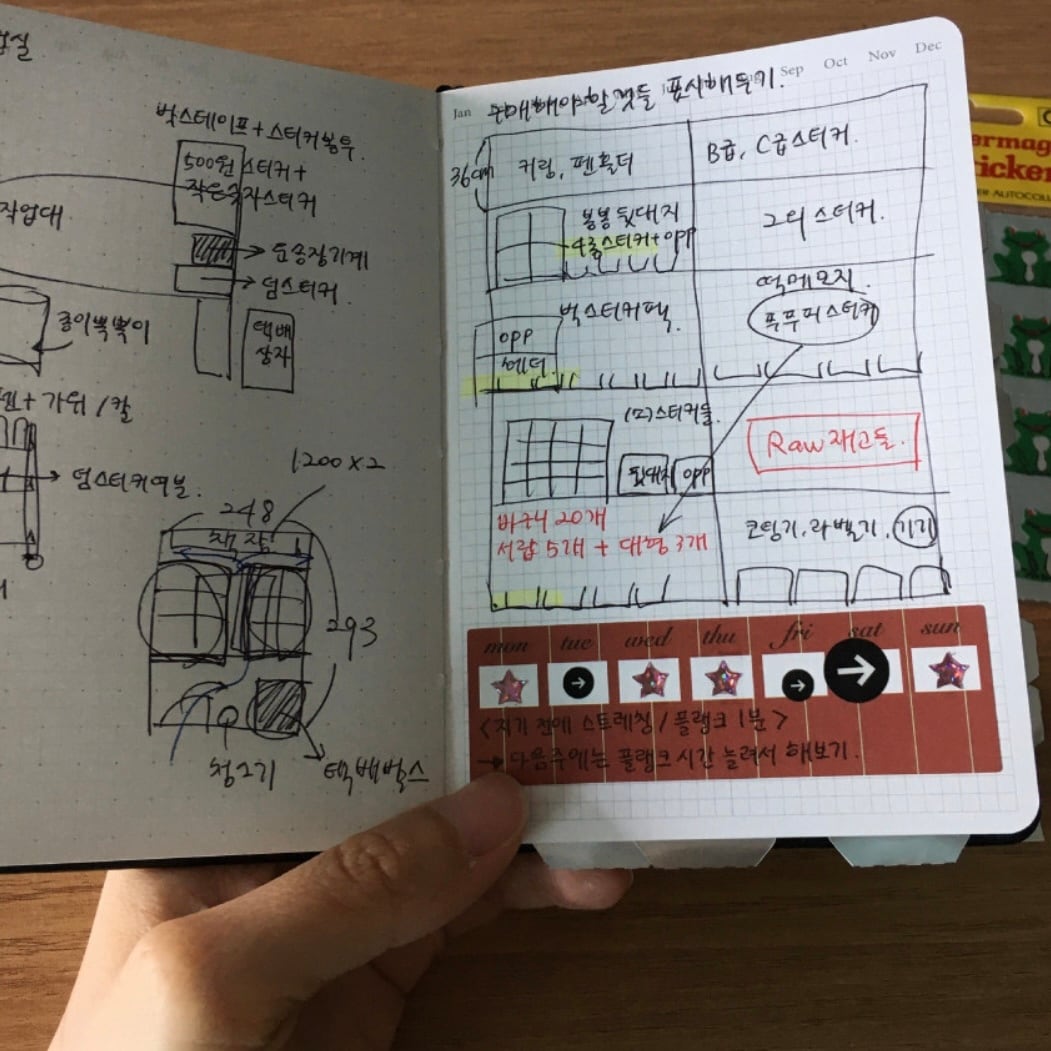 박스테이프+스티커봉투
500원 스티커+
작은숫자스티커
작업대
→ 운송장기계
→ 덤스티커.
택배
상자
종이뽁뽁이
+ 가위 / 칼
→ 덤스티커여분.
1200×2
248
책장
293
청소기
택배박스
Jan
Sep
Oct
Nov
Dec
구매해야할것들 표시해두기.
36cm
키링, 펜홀더
B급, C급스티커.
봉봉 뒷대지
4종스티커+opp
그외스티커.
박스티커팩.
opp
헤더.
떡메모지.
푸푸퍼스티커
스티커들.
뒷대지
opp
Raw재고들.
바구니 20개
서랍 5개 + 대형 3개
코팅기, 라벨기, 기기
mon
tue
wed
thu
fri
sat
sun
<자기 전에 스트레칭/플랭크 1분>
→ 다음주에는 플랭크 시간 늘려서 해보기.